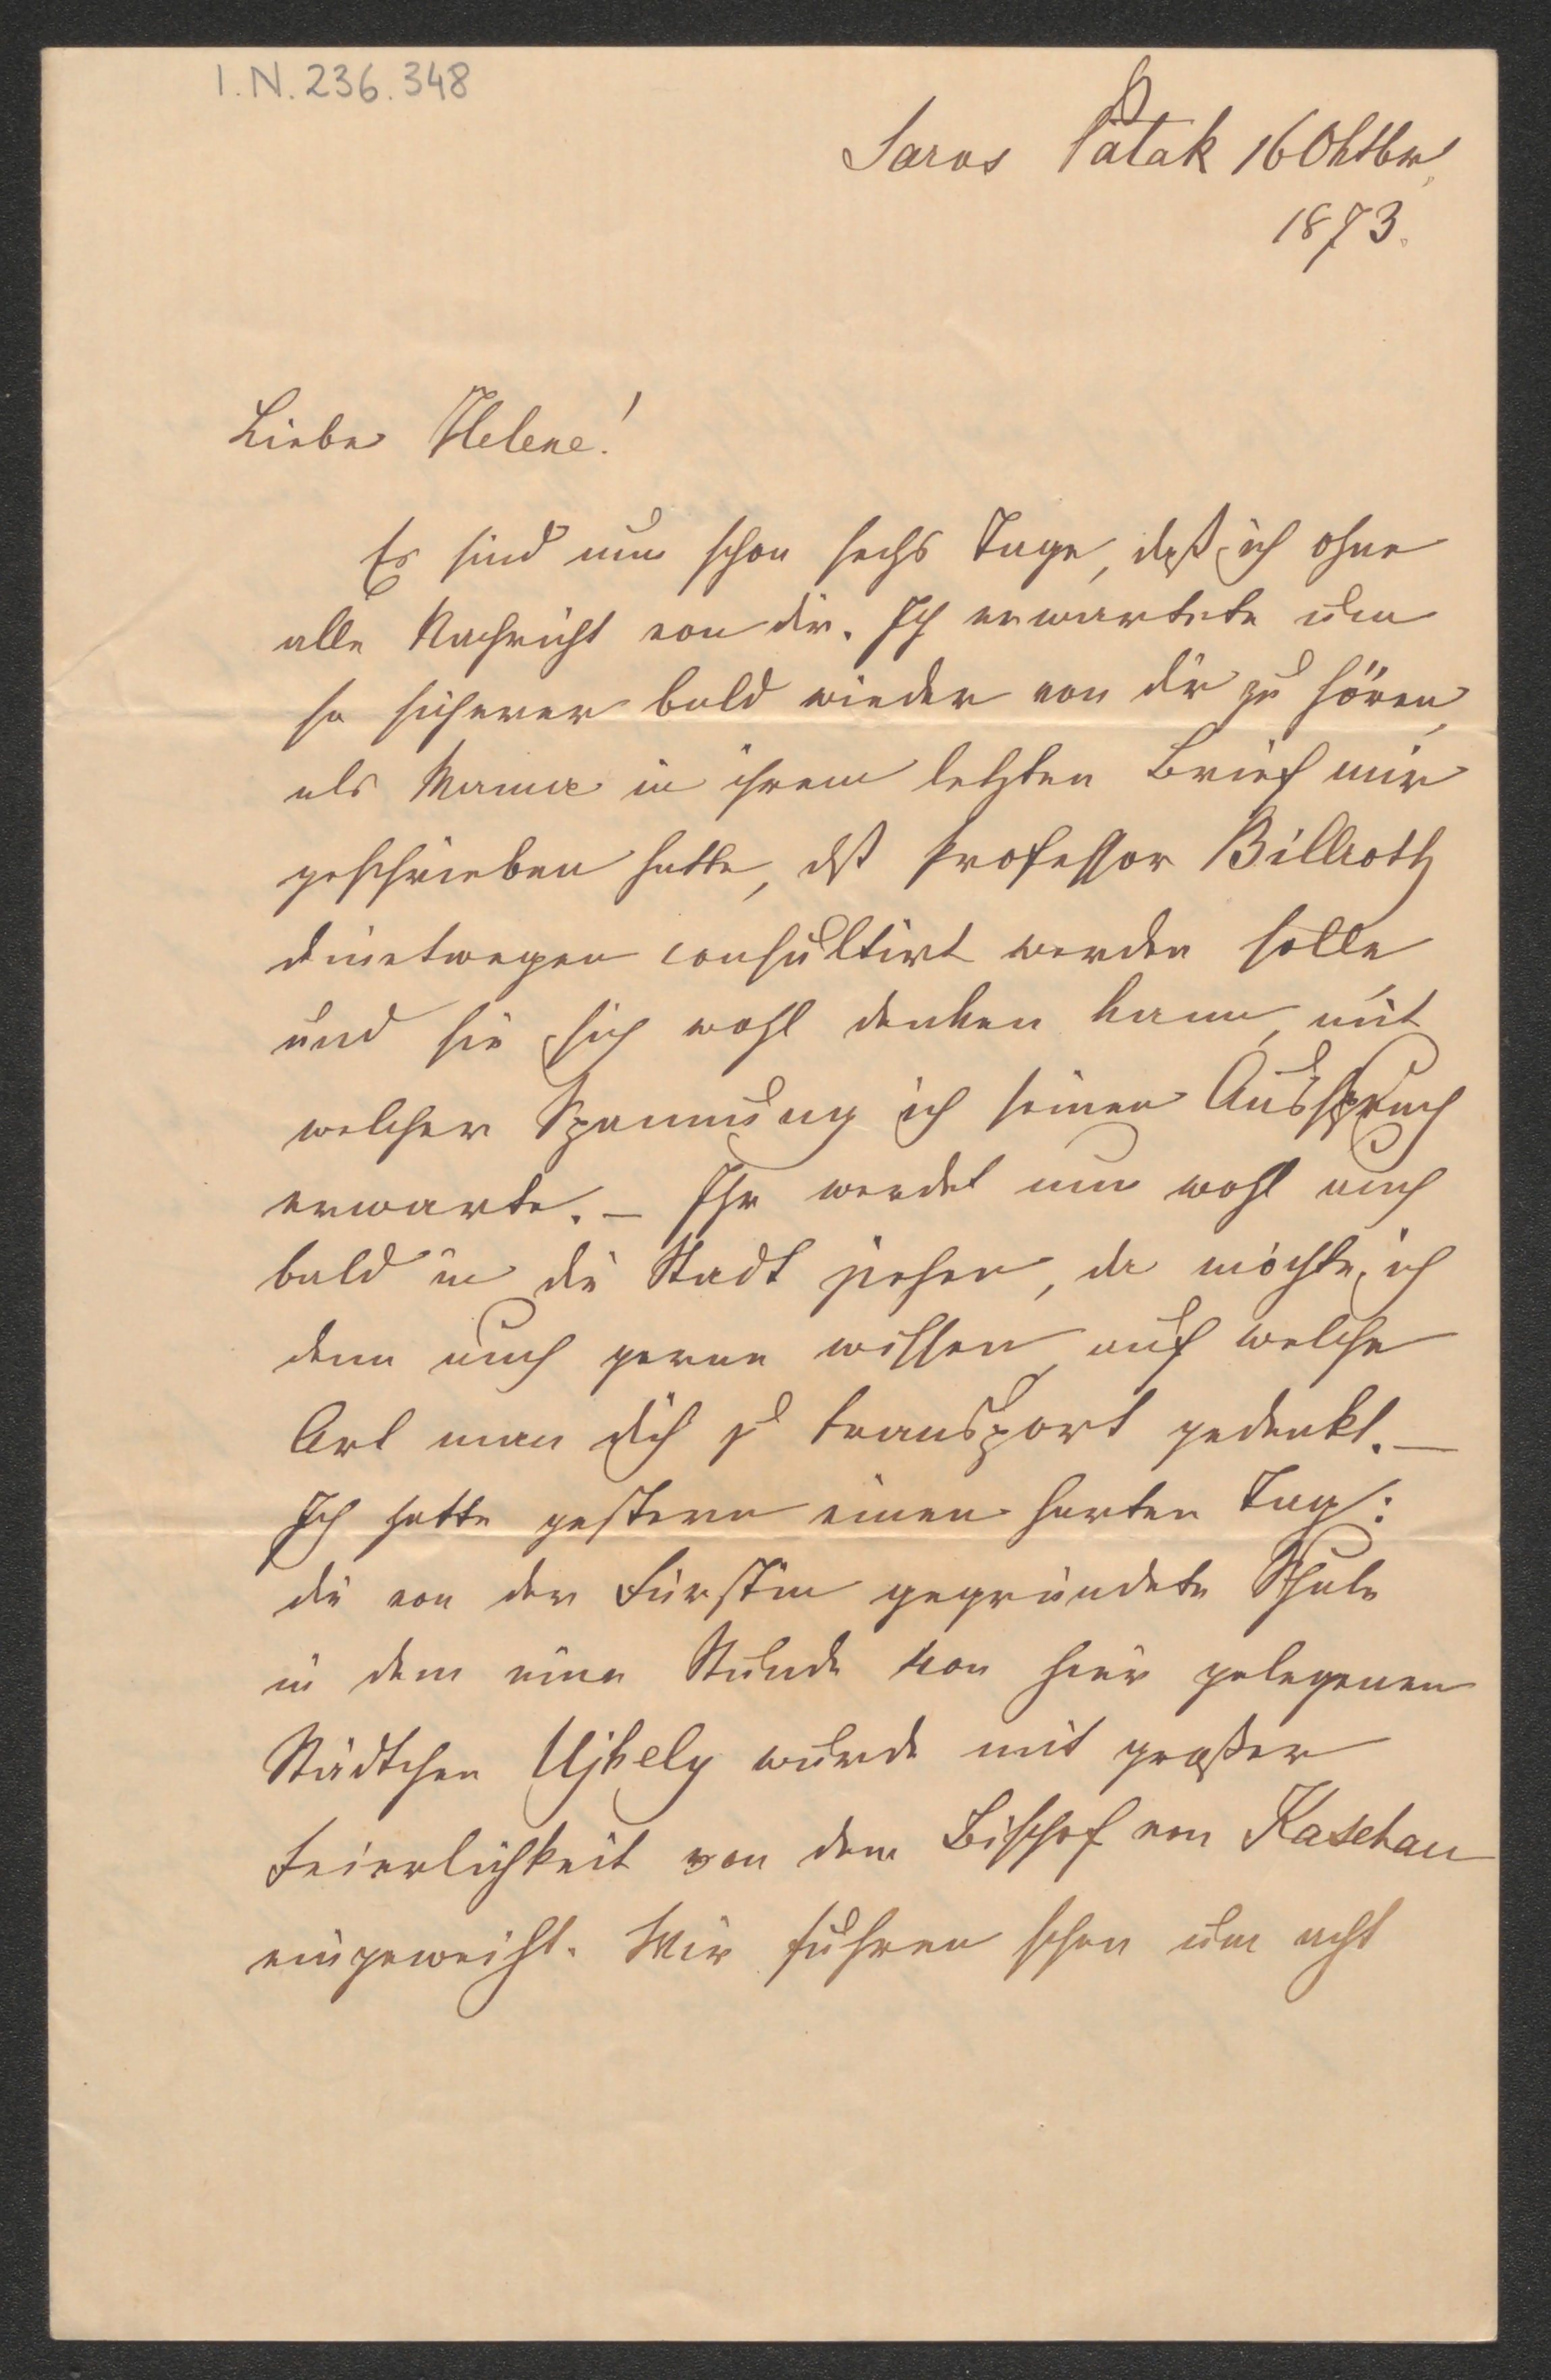 I.N. 236.348
Saros Patak 16 Oktbr
1873.
Liebe Helene!
Es sind nun schon sechs Tage, daß ich ohne
alle Nachricht von dir. Ich erwartete um
so sicherer bald wieder von dir zu hören,
als Mama in ihrem letzten Brief mir
geschrieben hatte, dß Professor Billroth
deinetwegen consultirt werden solle,
und sie sich wohl denken kann, mit
welcher Spannung ich seinen Ausspruch
erwarte. – Ihr werdet nun wohl auch
bald in die Stadt ziehen, da möchte ich
denn auch gerne wissen, auf welche
Art man dich zu transport gedenkt. –
Ich hatte gestern einen harten Tag:
die von der Fürstin gegründete Schule
in dem eine Stunde von hier gelegenen
Städtchen Ujhely wurde mit großer
Feierlichkeit von dem Bischof von Kaschau
eingeweiht. Wir fuhren schon um acht